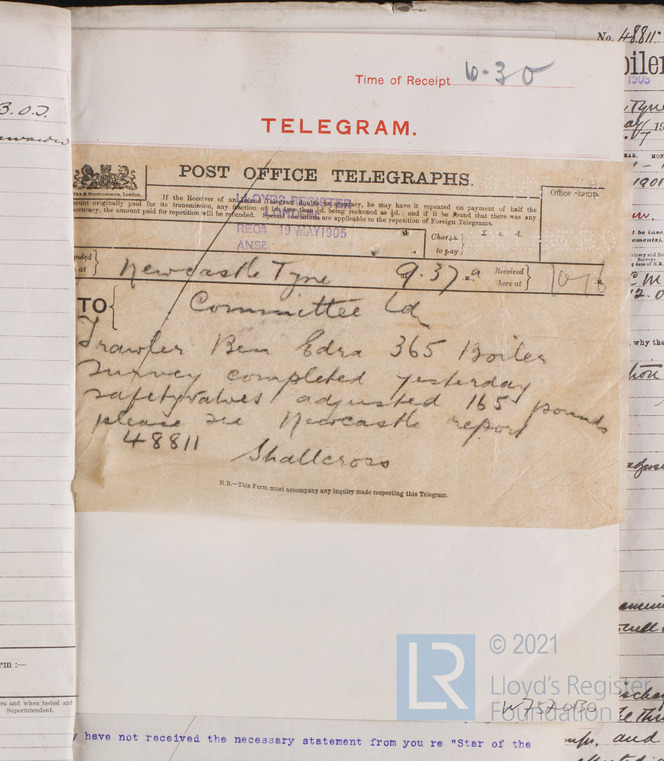 No. 48811
Time of Receipt 10-30
TELEGRAM.
POST OFFICE TELEGRAPHS.
If the Receiver of an Inland Telegram doubts its accuracy, he may have it repeated on payment of half the
amount originally paid for its transmission, any fraction of 1d. less than ½d. being reckoned as ½d.; and if it be found that there was any
inaccuracy, the amount paid for repetition will be refunded. Special conditions are applicable to the repetition of Foreign Telegrams.
Office Stamp.
LLOYD'S REGISTER
REC'D 19 MAY 1905
ANSD
Charges to pay
£ s. d.
Handed in at Newcastle Tyne 9.37 a M. Received here at 10 16
TO Committee Ld
Trawler Ben Edra 365 Boiler
survey completed yesterday
safetyvalves adjusted 165 pounds
please see Newcastle report
48811
Shallcross
N.B.—This Form must accompany any inquiry made respecting this Telegram.
B.O.T.
rm :—
Superintendent.
LR
© 2021
Lloyd's Register
Foundation
W757-0130
have not received the necessary statement from you re "Star of the